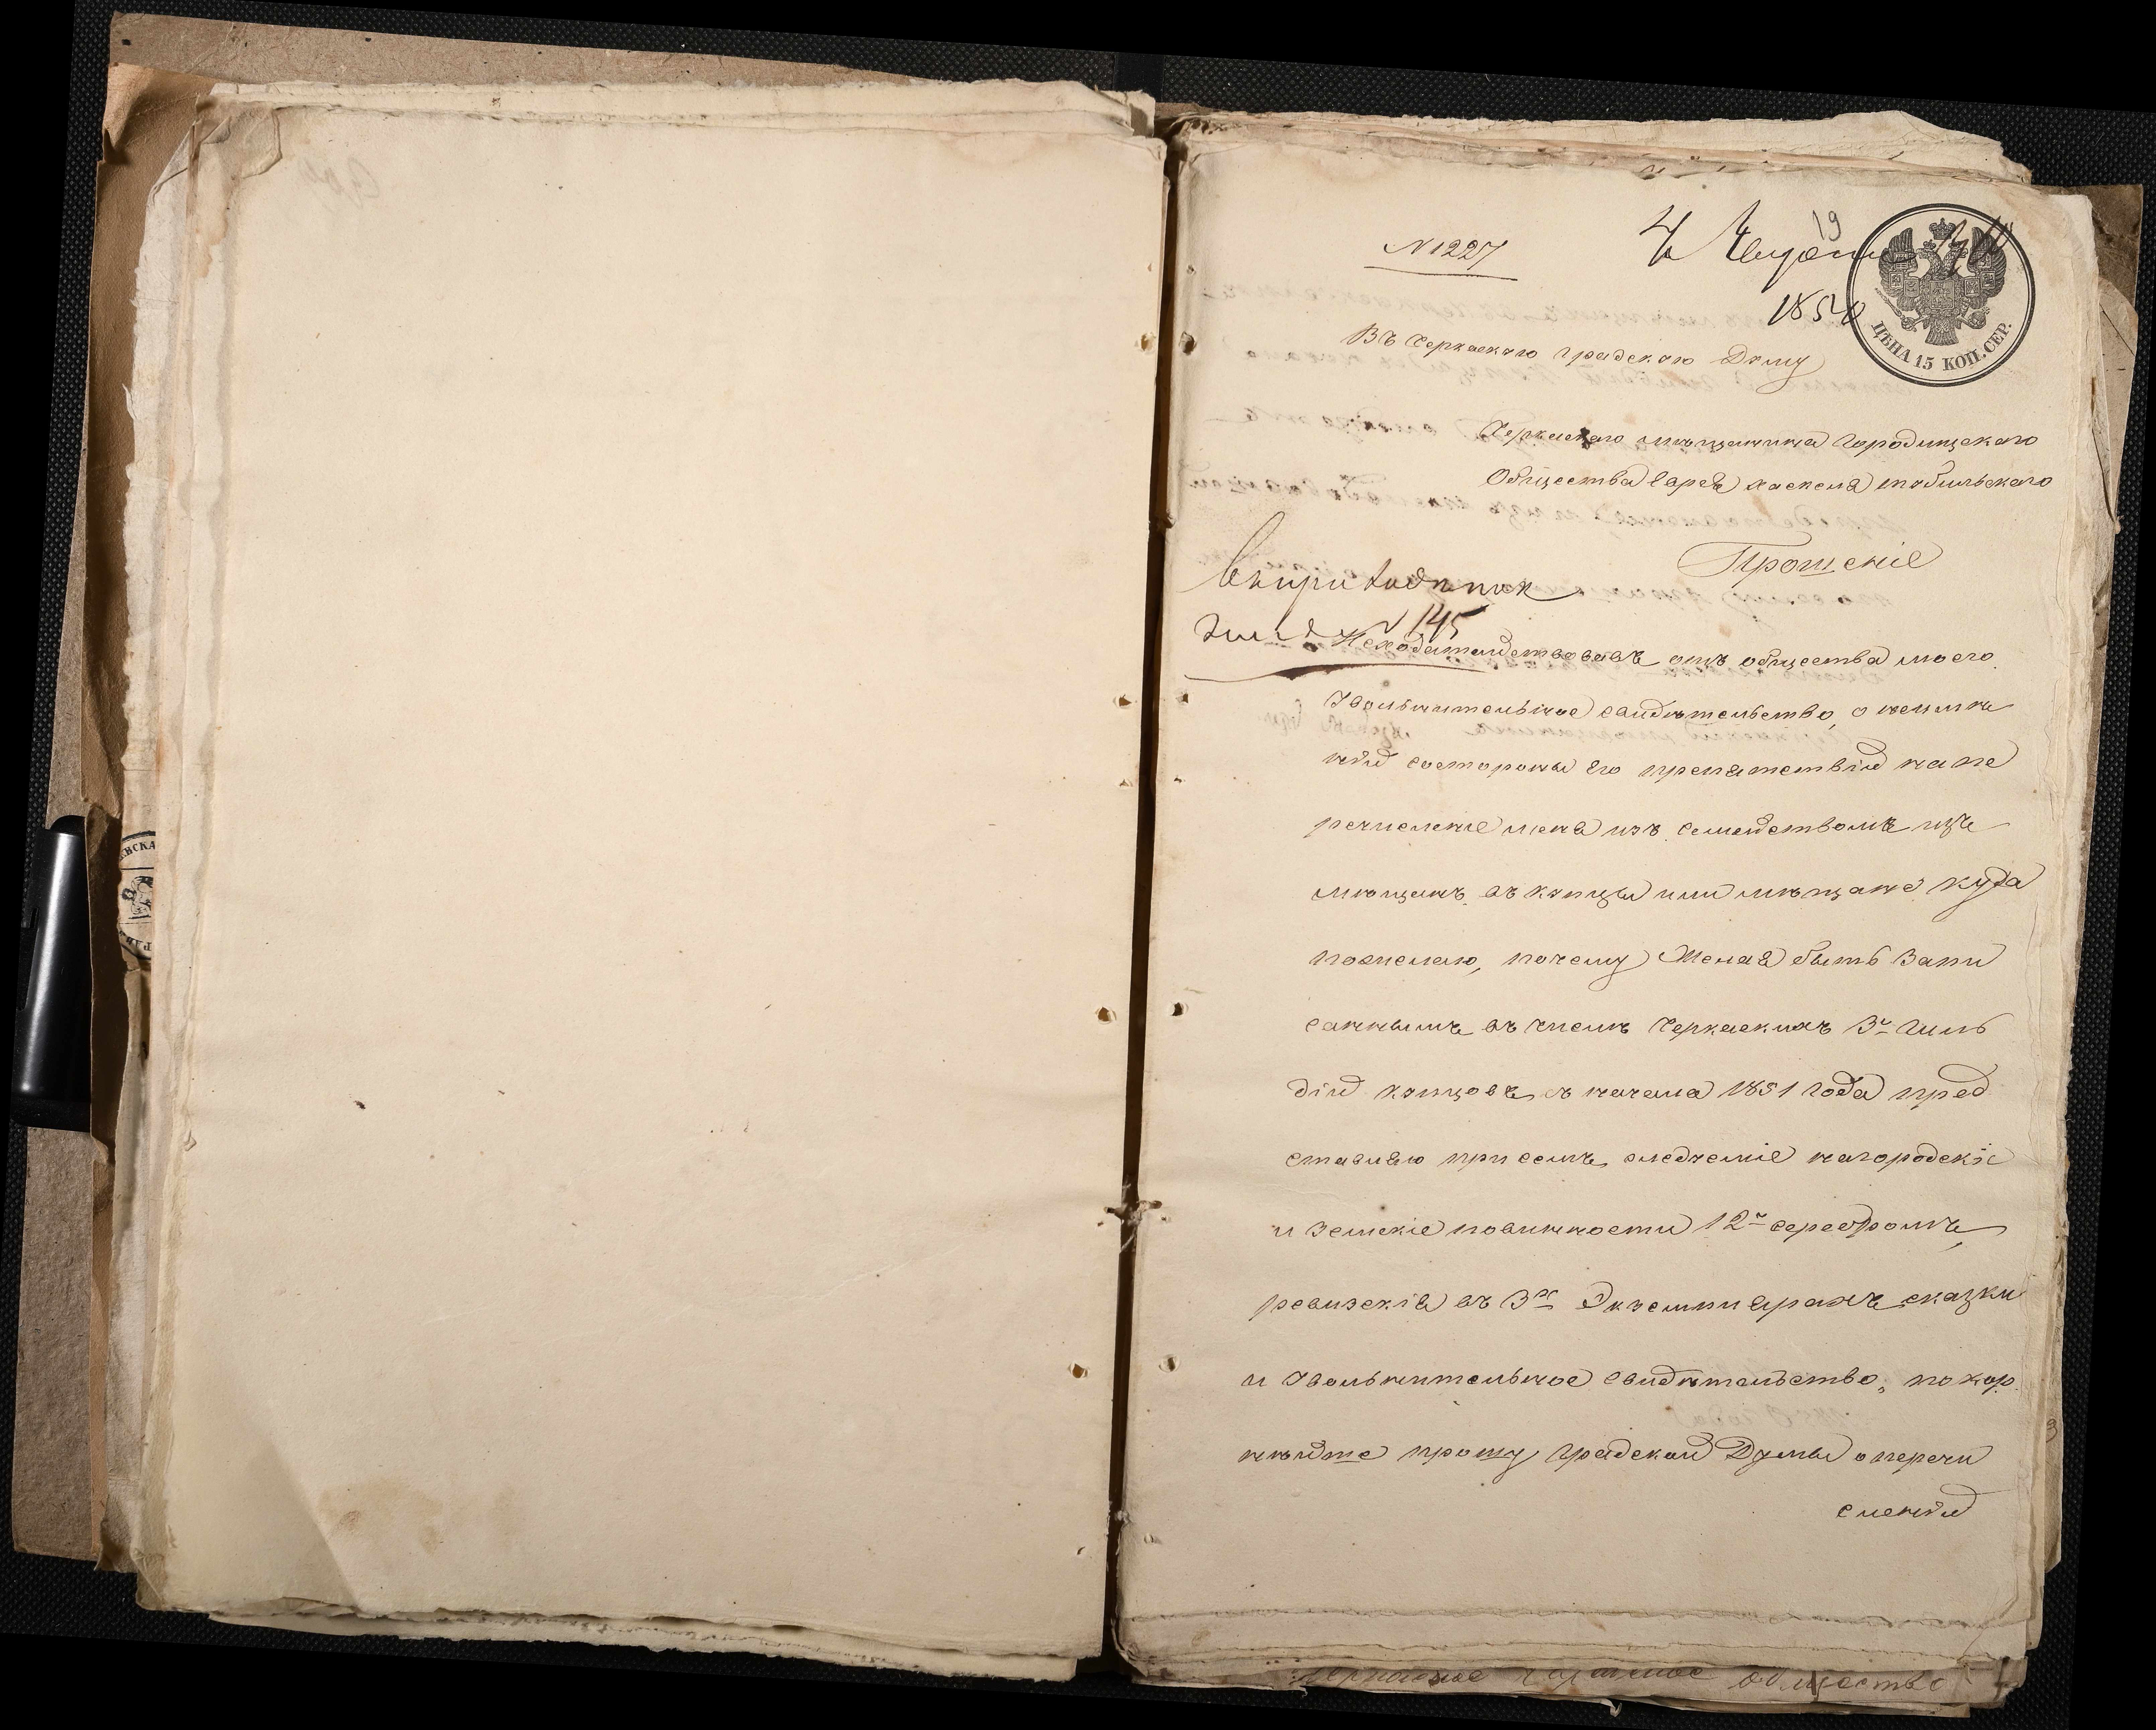 19
№ 1227
1850
ЦѢНА 15 КОП. СЕР.
Въ Черкаскую градскую Думу
Черкаскаго мѣщанина Городищскаго
Общества еврея Хаскеля тобильскаго
Прошеніе
№ 145
Исходатайствовавъ отъ общества моего
Увольнительное свидѣтельство, о неимѣ
нiи состороны его препятствiй на пе
речисленiе меня изъ семействомъ изъ
мѣщанъ въ купцы или мѣщане куда
пожелаю, почему Желая быть Запи
саннымъ въ число Черкаскихъ 3й Гиль
дiи купцовъ съ начала 1851 года пред
ставляю при семъ, следуемые нагородскiе
и земскiе повинности 12 р серебромъ,
ревизскiя въ 3хъ Экземплярахъ сказки
и Увольнительное свидѣтельство, покор
нѣйше прошу градской Думы о перечи
сленiи
общество